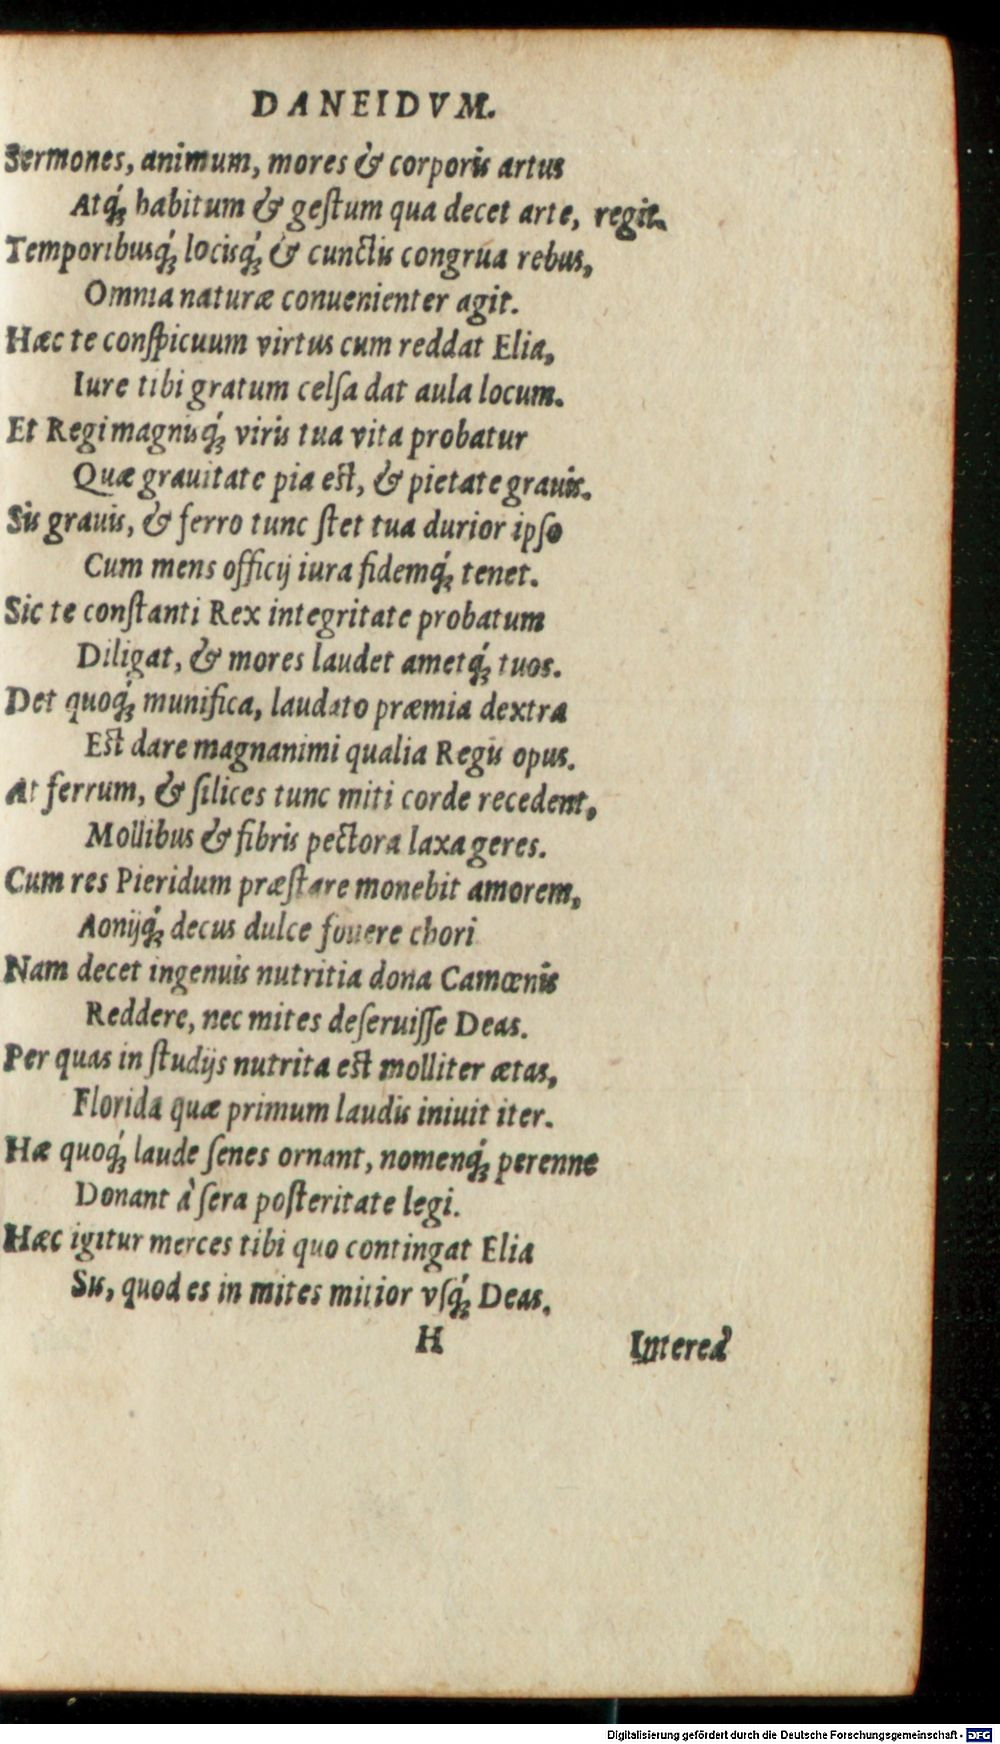 DANEIDVM.
Sermones, animum, mores & corporis artus
Atq́; habitum & geſtum qua decet arte, regit.
Temporibusq́; locisq́; & cunctis congrua rebus,
Omnia naturæ conuenienter agit.
Hæc te conſpicuum virtus cum reddat Elia,
Iure tibi gratum celſa dat aula locum.
Et Regi magnisq́; viris tua vita probatur
Quæ grauitate pia est, & pietate grauis.
Sis grauis, & ferro tunc ſtet tua durior ipſo
Cum mens officij iura fidemq́; tenet.
Sic te conſtanti Rex integritate probatum
Diligat, & mores laudet ametq́; tuos.
Det quoq́; munifica, laudato præmia dextra
Est dare magnanimi qualia Regis opus.
At ferrum, & ſilices tunc miti corde recedent,
Mollibus & fibris pectora laxa geres.
Cum res Pieridum præſtare monebit amorem,
Aonijq́; decus dulce fouere chori
Nam decet ingenuis nutritia dona Camœnis
Reddere, nec mites deſeruiſſe Deas.
Per quas in ſtudijs nutrita est molliter ætas,
Florida quæ primum laudis iniuit iter.
Hæ quoq́; laude ſenes ornant, nomenq́; perenne
Donant à ſera poſteritate legi.
Hæc igitur merces tibi quo contingat Elia
Sis, quod es in mites mitior vſq́; Deas.
H Intereà
Digitalisierung gefördert durch die Deutsche Forschungsgemeinschaft - DFG